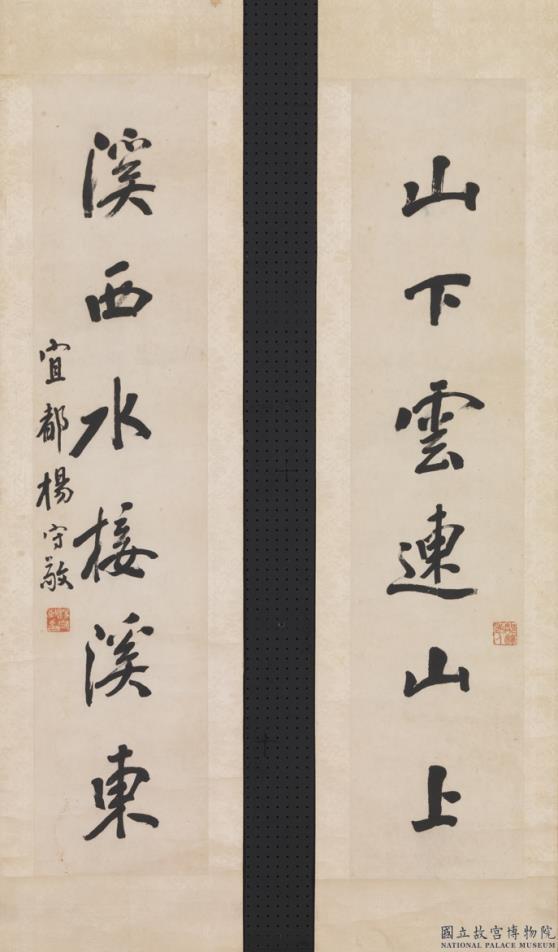 山下雲連山上
溪西水接溪東
宜都楊守敬
國立故宮博物院
NATIONAL PALACE MUSEUM